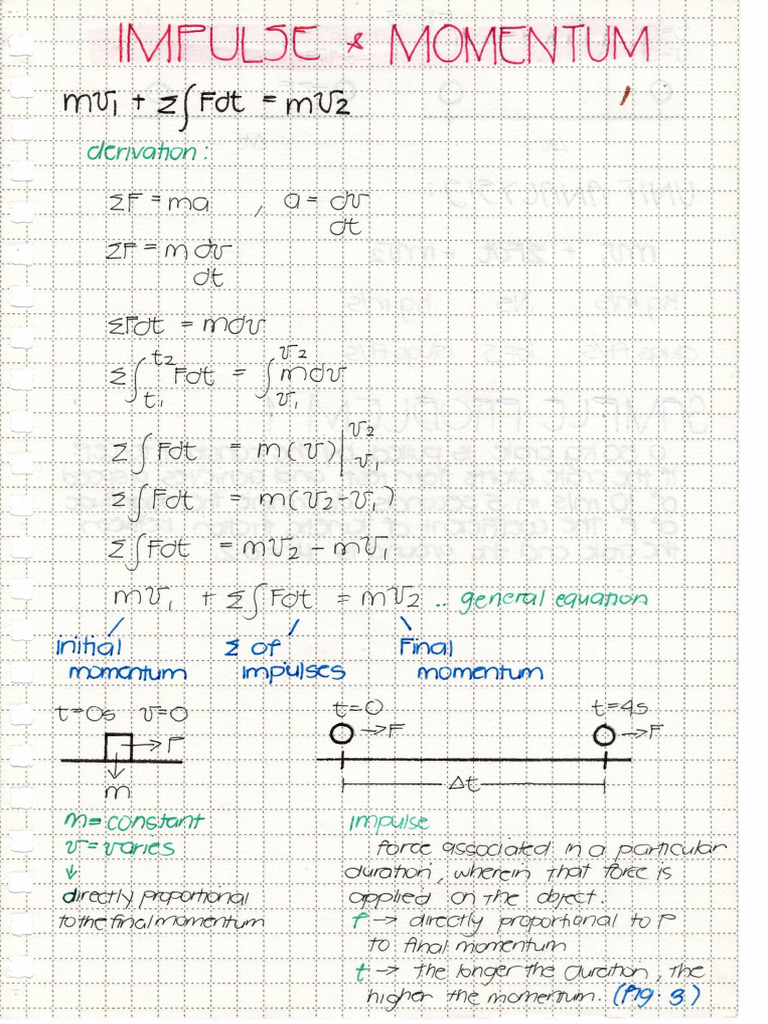 IMPULSE & MOMENTUM
mv₁ + Σ∫Fdt = mv₂
derivation:
ΣF = ma , a = dv/dt
ΣF = m dv/dt
ΣFdt = mdv
Σ∫t₁^t₂ Fdt = ∫v₁^v₂ mdv
Σ∫Fdt = m(v)|v₁^v₂
Σ∫Fdt = m(v₂-v₁)
Σ∫Fdt = mv₂ - mv₁
mv₁ + Σ∫Fdt = mv₂ .. general equation
Initial momentum
Σ of impulses
Final momentum
t=0s v=0
→F
m
t=0
→F
t=4s
→F
Δt
m=constant
v=varies
↓
directly proportional
to the final momentum
impulse
force associated in a particular
duration, wherein that force is
applied on the object.
F → directly proportional to F
to final momentum
t → the longer the duration, the
higher the momentum. (Fig. 3)